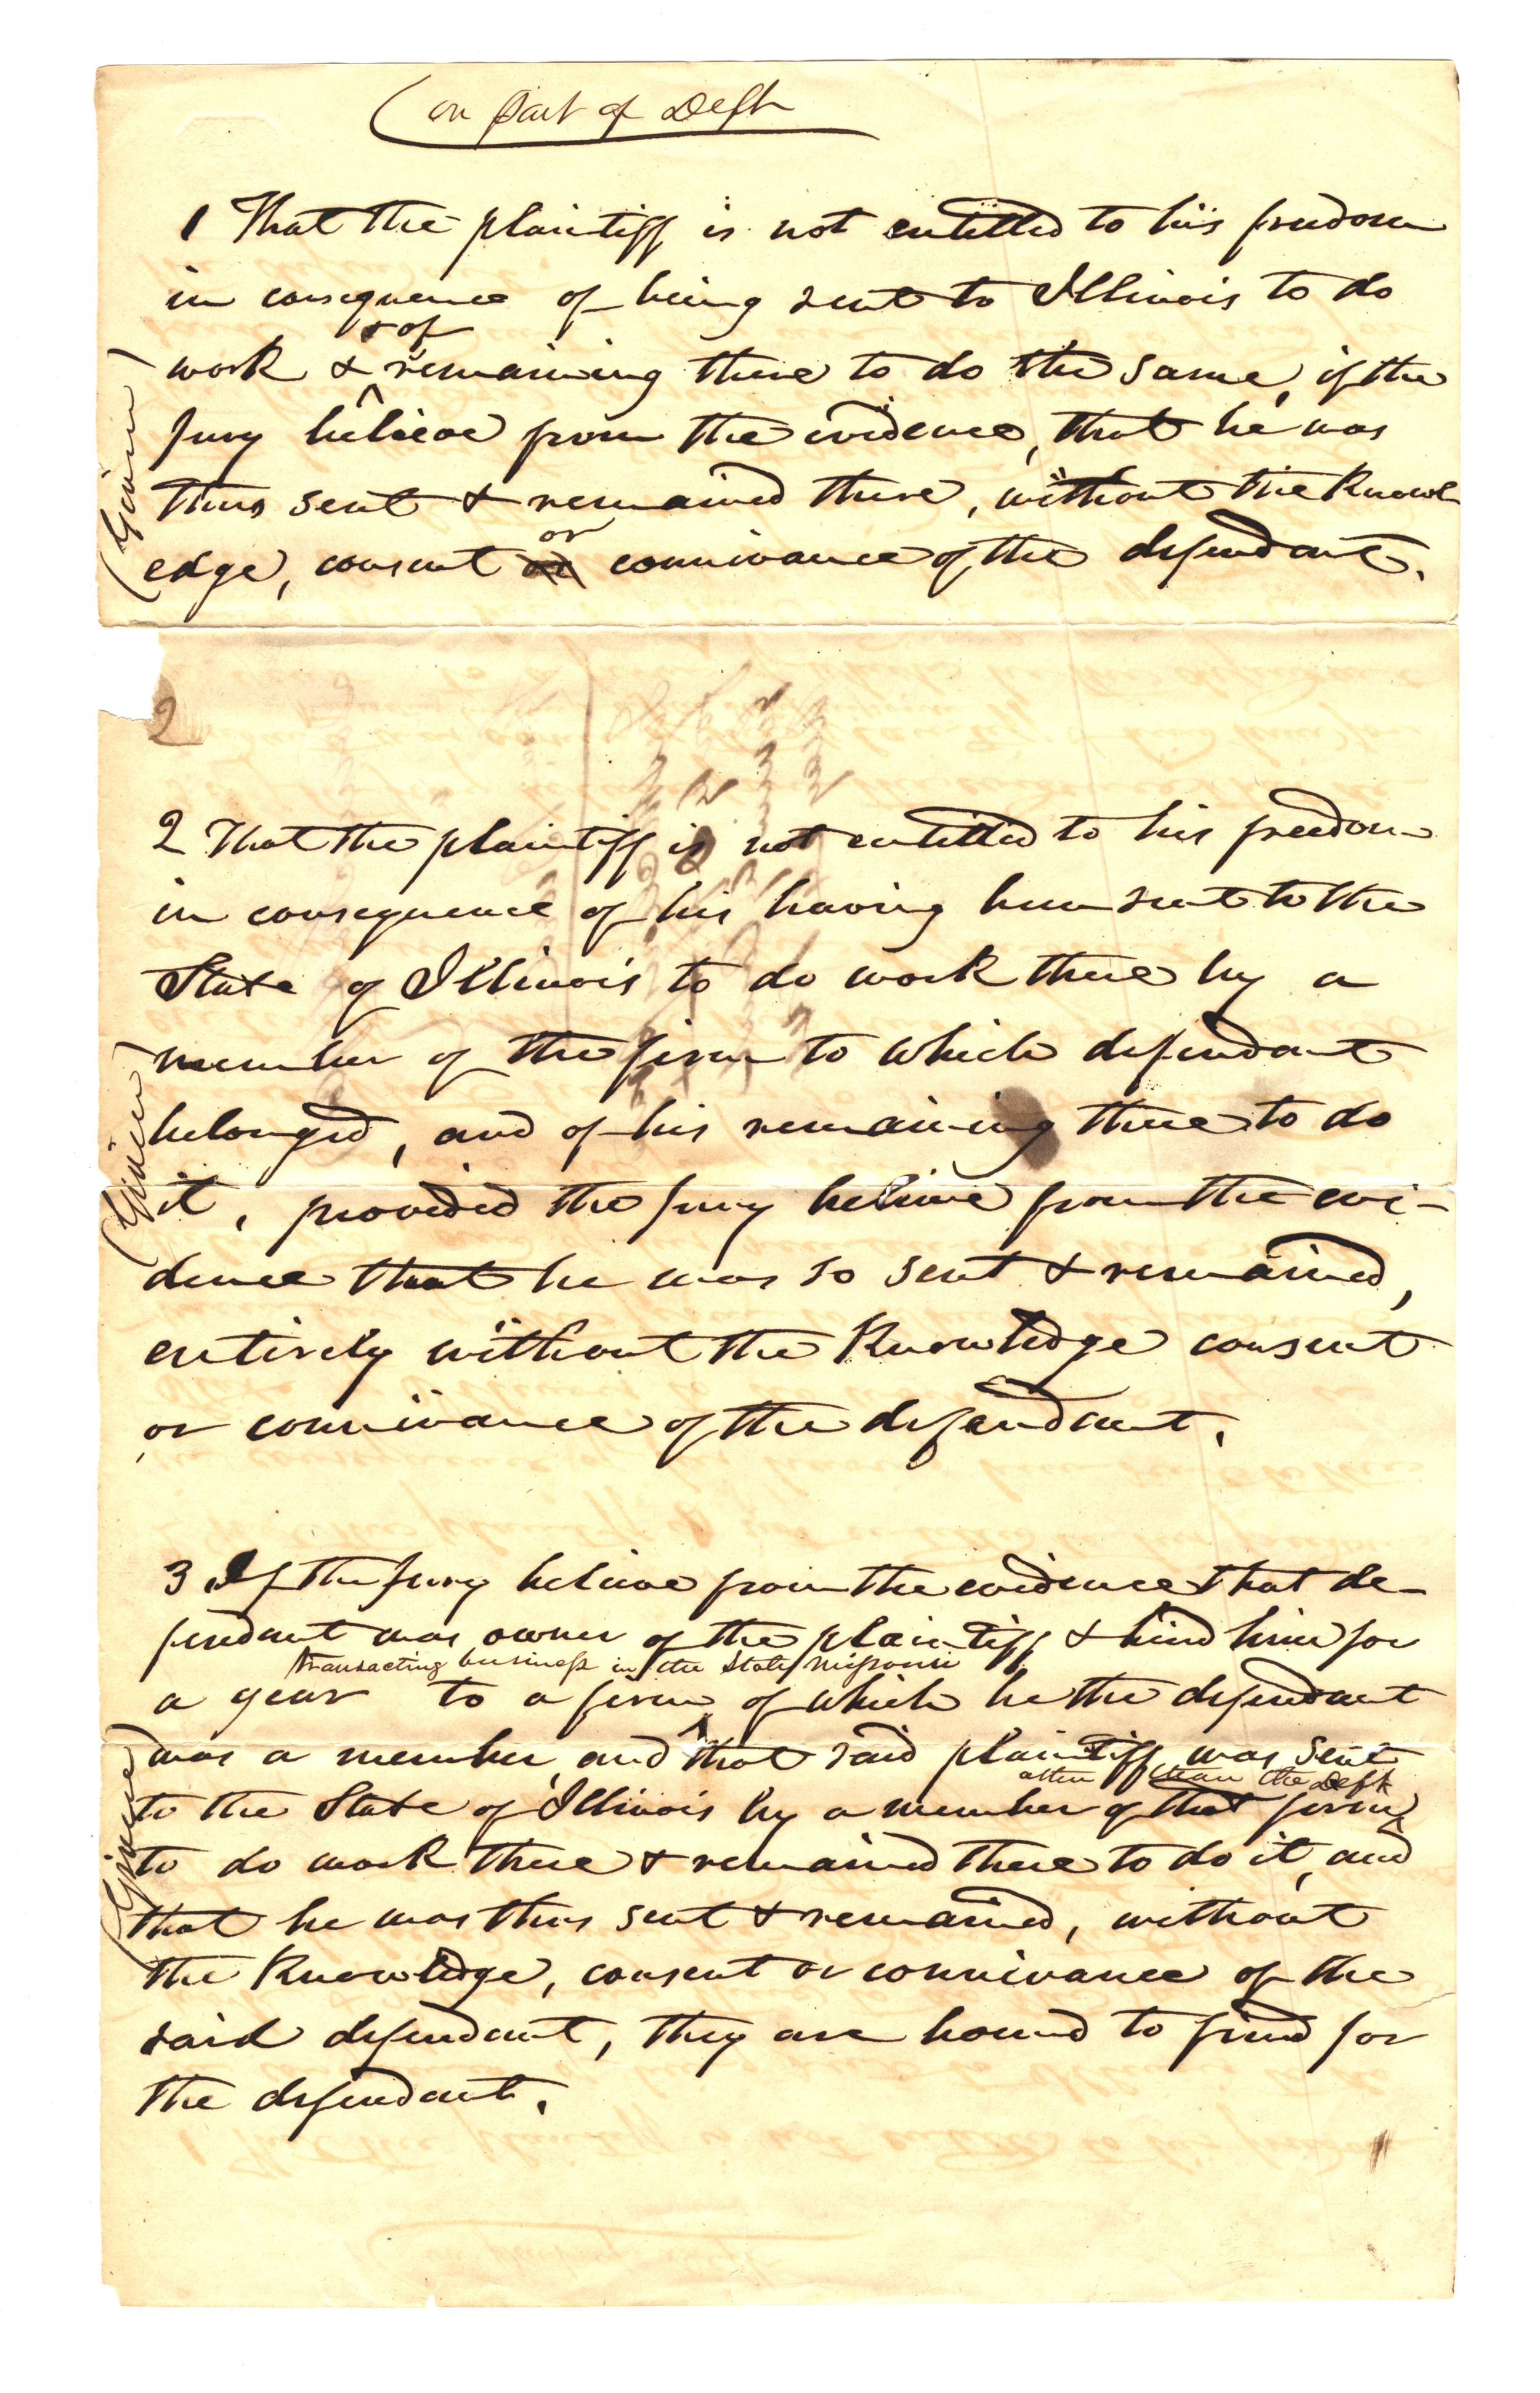 on part of Deft
1 That the plaintiff is not entitled to his freedom
in consequence of being sent to Illinois to do
& of
work & remaining there to do the same, if the
Jury believe from the evidence, that he was
thus sent & remained there, without the Knowl
or
edge, consent connivance of the defendant.
(Given)
2
2 That the plaintiff is not entitled to his freedom
in consequence of his having been sent to the
State of Illinois to do work there by a
member of the firm to which defendant
belonged, and of his remaining there to do
it, provided the jury believe from the evi-
dence that he was so sent & remained,
entirely without the Knowledge consent
or connivance of the defendant.
(Given)
3 If the jury believe from the evidence that de-
fendant was owner of the plaintiff & hired him for
transacting business in the State Missouri
a year to a firm of which he the defendant
was a member, and that said plaintiff was sent
other than the Deft
to the State of Illinois by a member of that firm,
to do work there & remained there to do it, and
that he was thus sent & remained, without
the Knowledge, consent or connivance of the
said defendant, they are bound to find for
the defendant.
(Given)